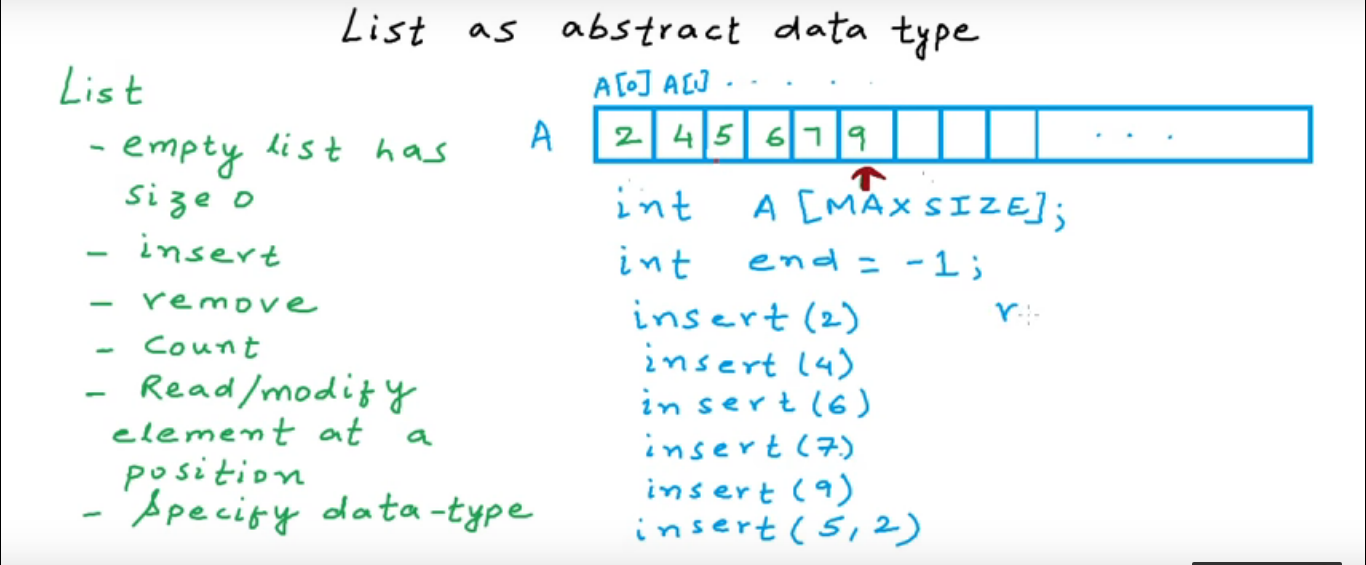 List as abstract data type
List
- empty list has
size 0
- insert
- remove
- Count
- Read/modify
element at a
position
- Specify data-type
A[0] A[1] . . . .
A 2 4 5 6 7 9 . . .
int A [MAXSIZE];
int end = -1;
insert (2)
r
insert (4)
insert (6)
insert (7)
insert (9)
insert (5, 2)